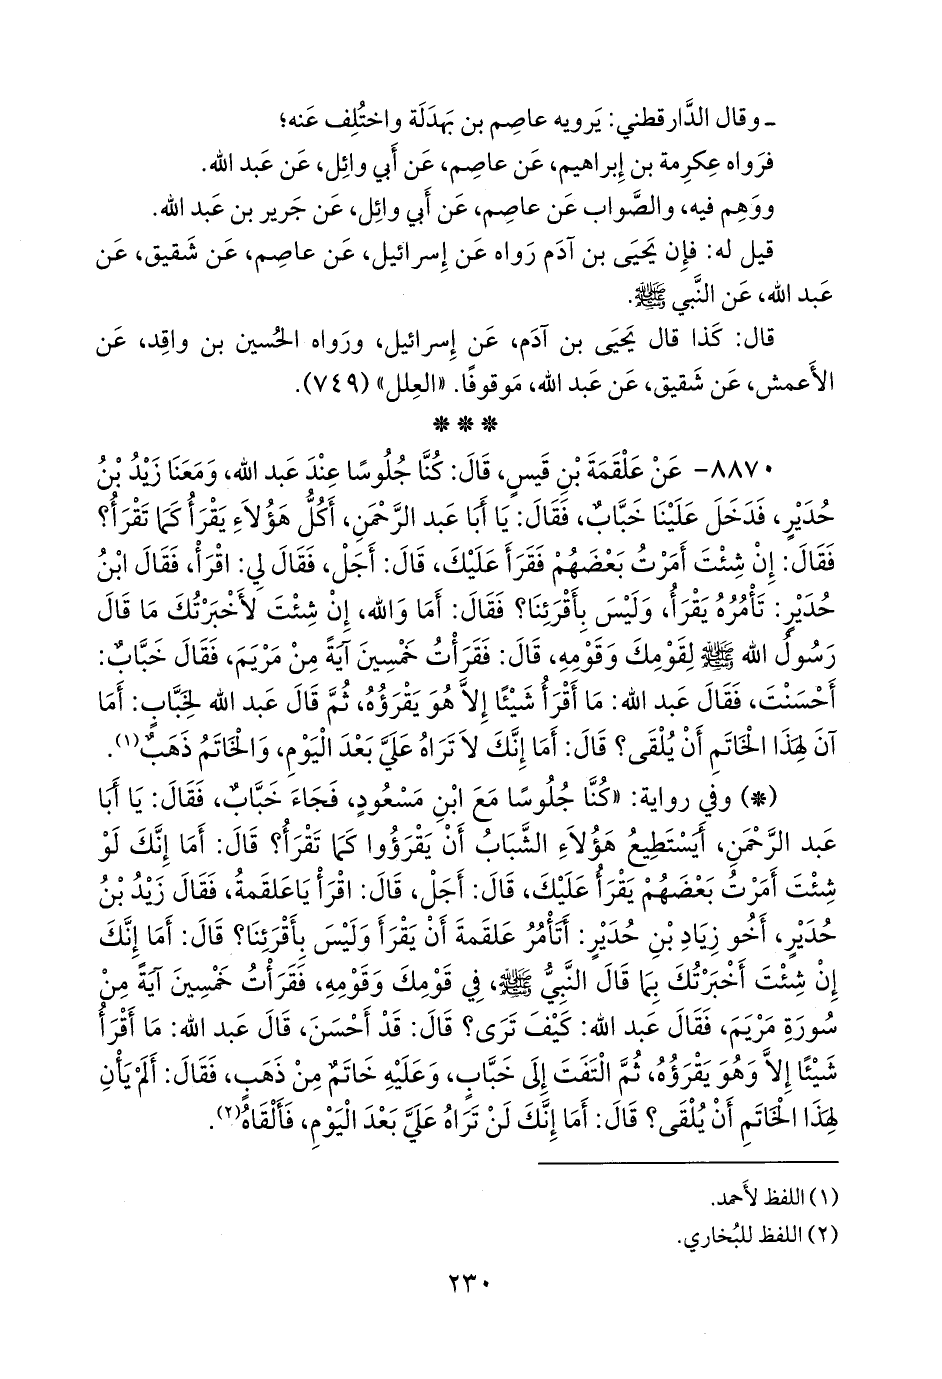 ـ وقال الدَّارقطني: يَرويه عاصِم بن بَهدَلَة واختُلِف عَنه؛
فرَواه عِكرِمة بن إِبراهيم، عَن عاصِم، عَن أَبي وائِل، عَن عَبد الله.
ووَهِم فيه، والصَّواب عَن عاصِم، عَن أَبي وائِل، عَن جَرير بن عَبد الله.
قيل له: فإِن يَحيَى بن آدَم رَواه عَن إِسرائيل، عَن عاصِم، عَن شَقيق، عَن
عَبد الله، عَن النَّبي ﷺ.
قال: كَذا قال يَحيَى بن آدَم، عَن إِسرائيل، ورَواه الحُسين بن واقِد، عَن
الأَعمش، عَن شَقيق، عَن عَبد الله، مَوقوفًا. «العِلل» (٧٤٩).
* * *
٨٨٧٠- عَنْ عَلْقَمَةَ بْنِ قَيسٍ، قَالَ: كُنَّا جُلُوسًا عِنْدَ عَبد الله، وَمَعَنَا زَيْدُ بْنُ
حُدَيْرٍ، فَدَخَلَ عَلَيْنَا خَبَّابٌ، فَقَالَ: يَا أَبَا عَبد الرَّحْمَنِ، أَكُلُّ هَؤُلاَءِ يَقْرَأُ كَمَا تَقْرَأُ؟
فَقَالَ: إِنْ شِئْتَ أَمَرْتُ بَعْضَهُمْ فَقَرَأَ عَلَيْكَ، قَالَ: أَجَلْ، فَقَالَ لِي: اقْرَأْ، فَقَالَ ابْنُ
حُدَيْرٍ: تَأْمُرُهُ يَقْرَأُ، وَلَيْسَ بِأَقْرَئِنَا؟ فَقَالَ: أَمَا وَالله، إِنْ شِئْتَ لأَخْبَرْتُكَ مَا قَالَ
رَسُولُ الله ﷺ لِقَومِكَ وَقَوْمِهِ، قَالَ: فَقَرَأْتُ خَمْسِينَ آيَةً مِنْ مَرْيَمَ، فَقَالَ خَبَّابٌ:
أَحْسَنْتَ، فَقَالَ عَبد الله: مَا أَقْرَأُ شَيْئًا إِلاَّ هُوَ يَقْرَؤُهُ، ثُمَّ قَالَ عَبد الله لِخَبَّابٍ: أَمَا
آنَ لِهَذَا الْخَاتَمِ أَنْ يُلْقَى؟ قَالَ: أَمَا إِنَّكَ لاَ تَرَاهُ عَلَيَّ بَعْدَ الْيَوْمِ، وَالْخَاتَمُ ذَهَبٌ(١).
(*) وفي رواية: «كُنَّا جُلُوسًا مَعَ ابْنِ مَسْعُودٍ، فَجَاءَ خَبَّابٌ، فَقَالَ: يَا أَبَا
عَبد الرَّحْمَنِ، أَيَسْتَطِيعُ هَؤُلاَءِ الشَّبَابُ أَنْ يَقْرَؤُوا كَمَا تَقْرَأُ؟ قَالَ: أَمَا إِنَّكَ لَوْ
شِئْتَ أَمَرْتُ بَعْضَهُمْ يَقْرَأُ عَلَيْكَ، قَالَ: أَجَلْ، قَالَ: اقْرَأْ يَاعَلقمَةُ، فَقَالَ زَيْدُ بْنُ
حُدَيْرٍ، أَخُو زِيَادِ بْنِ حُدَيْرٍ: أَتَأْمُرُ عَلقمةَ أَنْ يَقْرَأَ وَلَيْسَ بِأَقْرَئِنَا؟ قَالَ: أَمَا إِنَّكَ
إِنْ شِئْتَ أَخْبَرْتُكَ بِمَا قَالَ النَّبِيُّ ﷺ، فِي قَوْمِكَ وَقَوْمِهِ، فَقَرَأْتُ خَمْسِينَ آيَةً مِنْ
سُورَةِ مَرْيَمَ، فَقَالَ عَبد الله: كَيْفَ تَرَى؟ قَالَ: قَدْ أَحْسَنَ، قَالَ عَبد الله: مَا أَقْرَأُ
شَيْئًا إِلاَّ وَهُوَ يَقْرَؤُهُ، ثُمَّ الْتَفَتَ إِلَى خَبَّابٍ، وَعَلَيْهِ خَاتَمٌ مِنْ ذَهَبٍ، فَقَالَ: أَلَمْ يَأْنِ
لِهَذَا الْخَاتَمِ أَنْ يُلْقَى؟ قَالَ: أَمَا إِنَّكَ لَنْ تَرَاهُ عَلَيَّ بَعْدَ الْيَوْمِ، فَأَلْقَاهُ(٢).
(١) اللفظ لأَحمد.
(٢) اللفظ للبُخاري.
٢٣٠